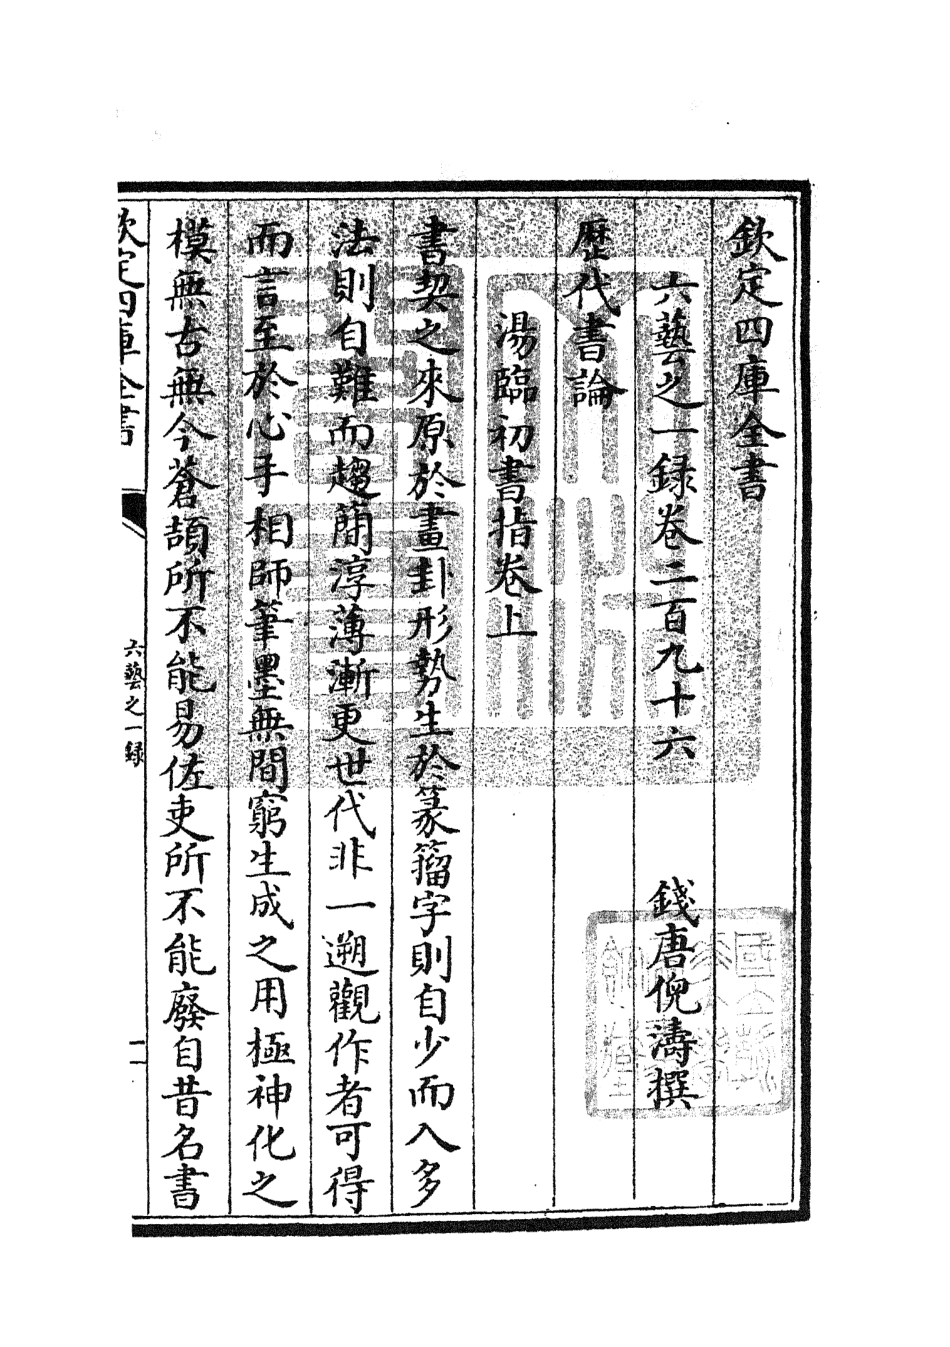 欽定四庫全書
六藝之一録卷二百九十六
錢唐倪濤撰
歷代書論
湯臨初書指卷上
書契之來原於畫卦形勢生於篆籀字則自少而入多
法則自難而趨簡淳薄漸更世代非一遡觀作者可得
而言至於心手相師筆墨無間窮生成之用極神化之
模無古無今蒼頡所不能易佐吏所不能廢自昔名書
欽定四庫全書
六藝之一録
一